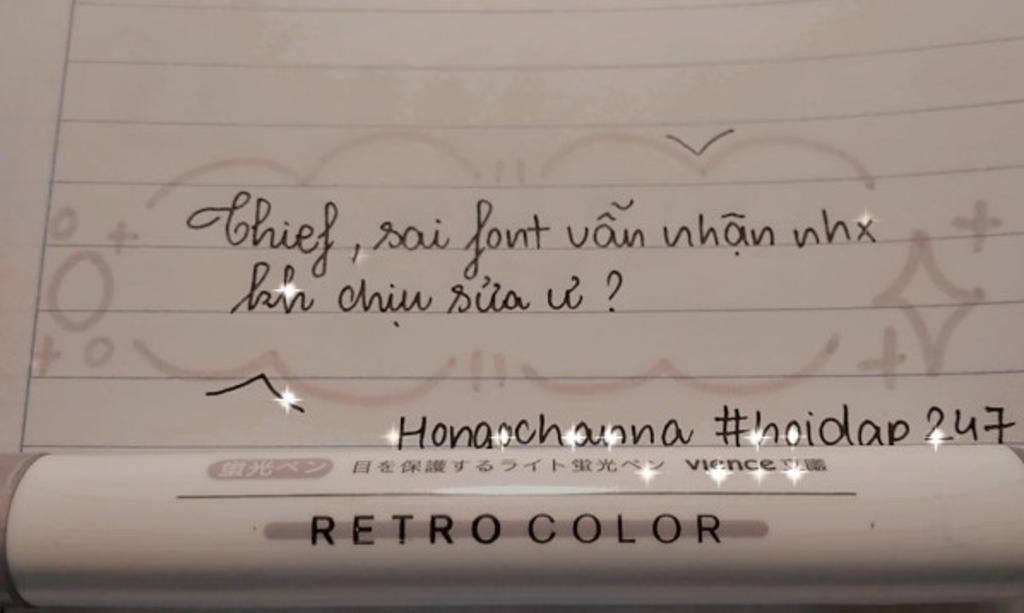 Chief, sai font vẫn nhận nhx
kh chịu sửa ư ?
Hongochanna #hoidap247
蛍光ペン 目を保護するライト蛍光ペン vience
RETRO COLOR